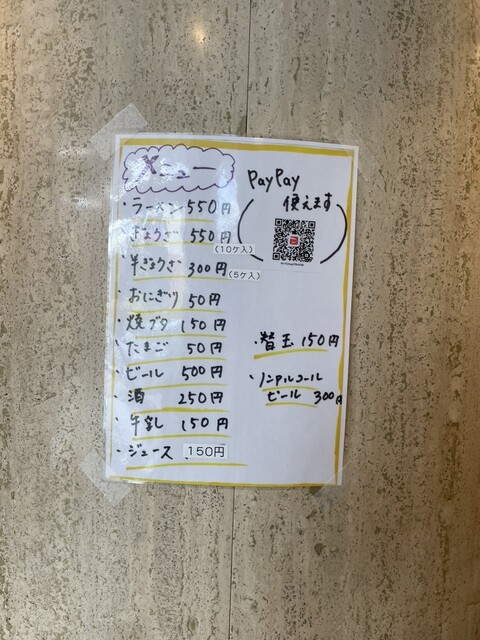 メニュー
・ラーメン 550円
・ぎょうざ 550円
(10ケ入)
・半ぎょうざ 300円
(5ケ入)
・おにぎり 50円
・焼ブタ 150円
・たまご 50円
・ビール 500円
・酒 250円
・牛乳 150円
・ジュース 150円
PayPay
使えます
・替玉 150円
・ノンアルコール
ビール 300円